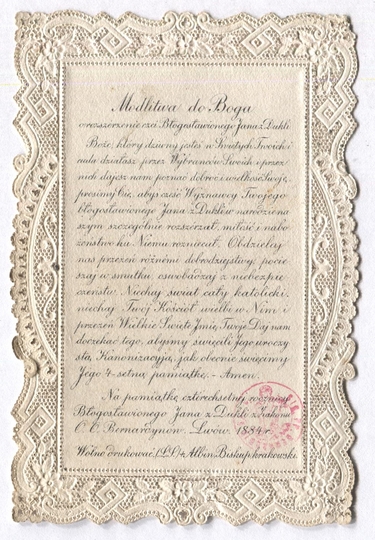 Modlitwa do Boga
o rozszerzenie czci Błogosławionego Jana z Dukli
Boże, który dziwny jesteś w Świętych Twoich i
cuda działasz przez Wybrańców Swoich i przez
nich dajesz nam poznać dobroć i wielkość Swoję,
prosimy Cię, abyś cześć Wyznawcy Twojego
błogosławionego Jana z Dukli w narodzie na
szym szczególnie rozszerzał, miłość i nabo
żeństwo ku Niemu rozniecał. Obdzielaj
nas przezeń różnemi dobrodziejstwy, pocie
szaj w smutku, oswobadzaj z niebezpie
czeństw. Niechaj świat cały katolicki,
niechaj Twój Kościół wielbi w Nim i
przezeń Wielkie Święte Imię Twoje. Daj nam
doczekać tego, abyśmy święcili Jego uroczy
stą Kanonizacyją, jak obecnie święcimy
Jego 4-setną pamiątkę. - Amen.
Na pamiątkę czterechsetnej rocznicy
Błogosławionego Jana z Dukli z Zakonu
O. O. Bernardynów. Lwów 1884 r.
Wolno drukować (LS) + Albin Biskup krakowski.